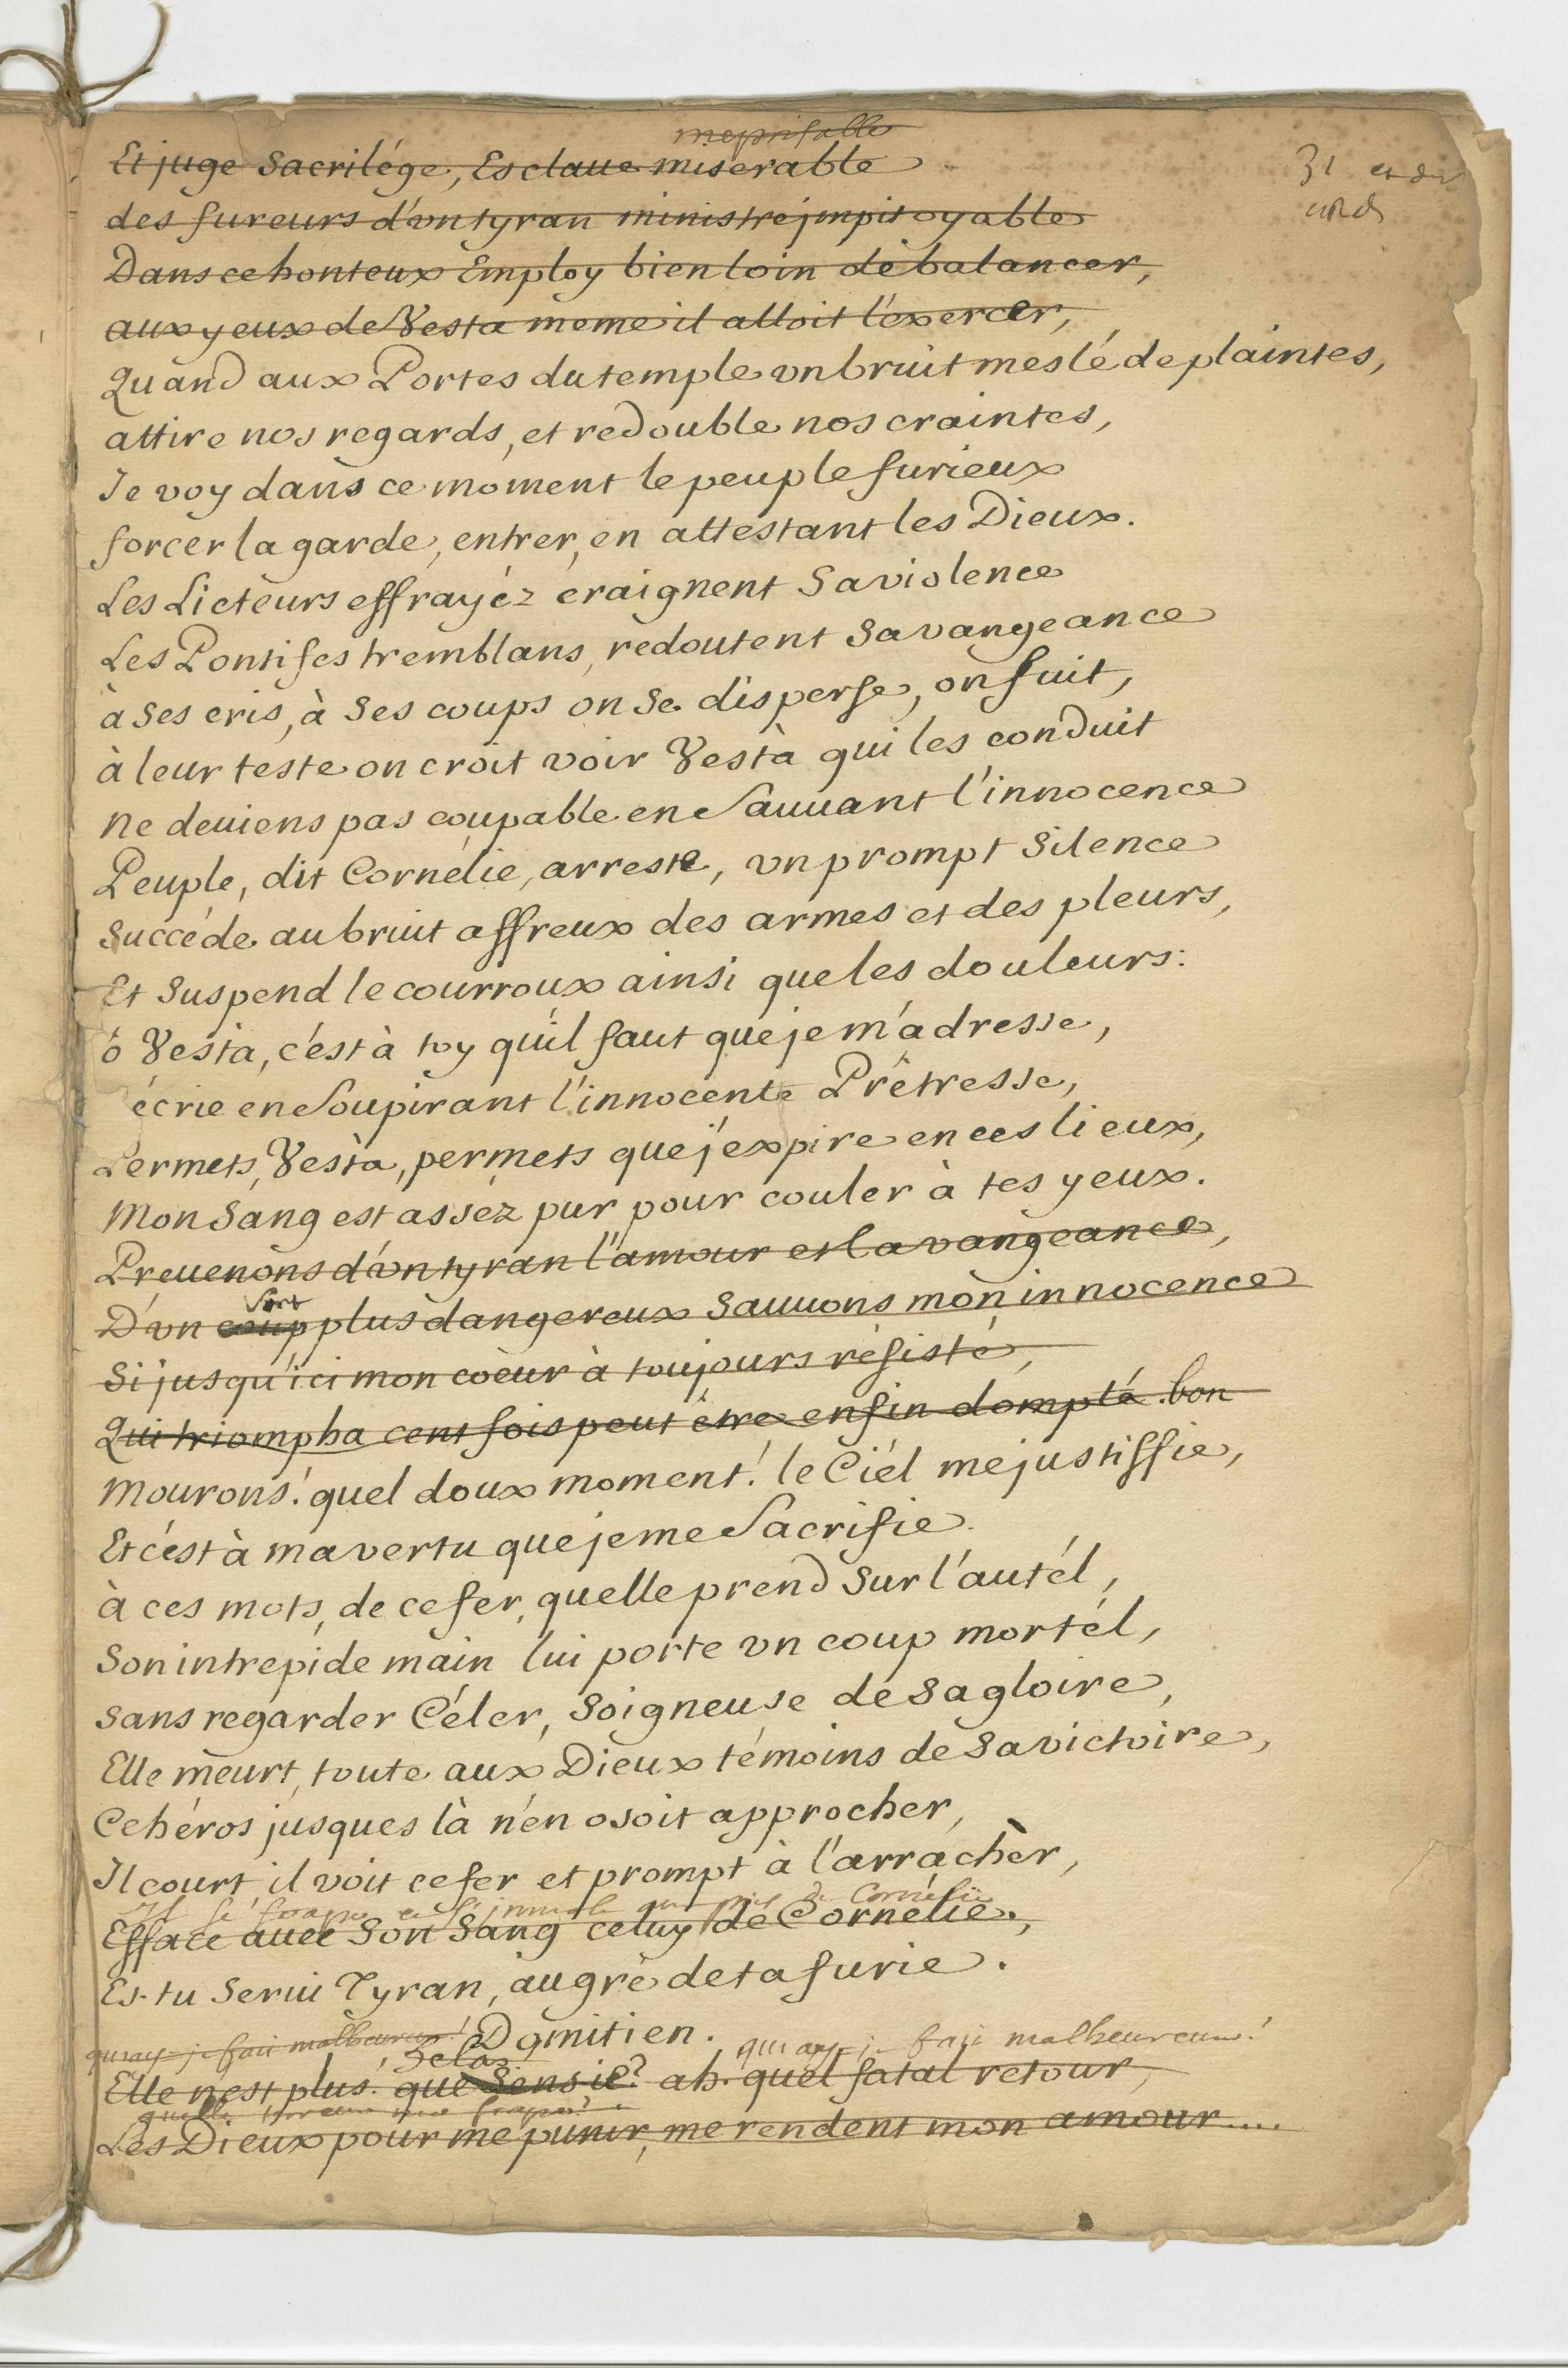 meprisable
Et juge Sacrilége, Esclaue miserable
31 et der
des fureurs d'vn tyran ministre jmpitoyable
Dans ce honteux Employ bien loin de balancer,
aux yeux de Vesta meme il alloit l'exercer,
Quand aux Portes du temple vn bruit meslé de plaintes,
attire nos regards, et redouble nos craintes,
Je voy dans ce moment le peuple furieux
forcer la garde, entrer, en attestant les Dieux.
Les Licteurs effrayéz craignent Sa violence
Les Pontifes tremblans, redoutent Sa vangeance
à Ses cris, à Ses coups on Se disperse, on fuit,
à leur teste on croit voir Vesta qui les conduit
Ne deuiens pas coupable en Sauuant l'innocence
Peuple, dit Cornélie, arreste, vn prompt Silence
Succéde au bruit affreux des armes et des pleurs,
Et Suspend le courroux ainsi que les douleurs:
ô Vesta, c'est à toy qu'il faut que je m'adresse,
écrie en Soupirant l'innocente Prêtresse,
Permets, Vesta, permets que j'expire en ces lieux,
Mon Sang est assez pur pour couler à tes yeux.
Preuenons d'vn tyran l'amour et la vangeance,
Sort
D'vn coup plus dangereux Sauuons mon innocence
Si jusqu'ici mon coeur à toujours résisté,
Qui triompha cent fois peut être enfin dompté. bon
Mourons! quel doux moment! le Ciél me justiffie,
Et c'est à ma vertu que je me Sacrifie.
à ces mots, de ce fer, quelle prend Sur l'autél,
Son intrepide main lui porte vn coup mortél,
Sans regarder Céler, Soigneuse de Sa gloire,
Elle meurt, toute aux Dieux témoins de Sa victoire,
Ce héros jusques là n'en osoit approcher,
Il court, il voit ce fer et prompt à l'arracher,
Il se frape et de Cornélie
Efface auec Son Sang celuy de Cornélie,
Es-tu Serui Tyran, au gré de ta furie.
Domitien.
qu'ay-je fait malheureux! qu'ay-je fait malheureux!
helas
Elle n'est plus! que Sens-je? ah. quel fatal retour,
quelle me frape?
Les Dieux pour me punir, me rendent mon amour....